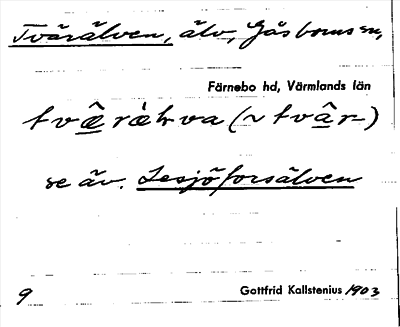 Tvärälven, älv, Gåsborns sn,
Färnebo hd, Värmlands län
(~ tvâr-)
se äv. Lesjöforsälven
9 Gottfrid Kallstenius 1903